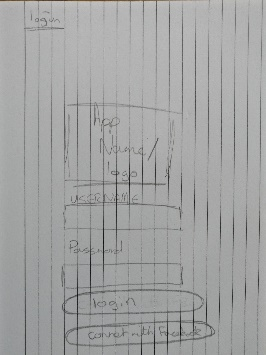 login
App
Name/
logo
USERNAME
Password
login
connect with Facebook